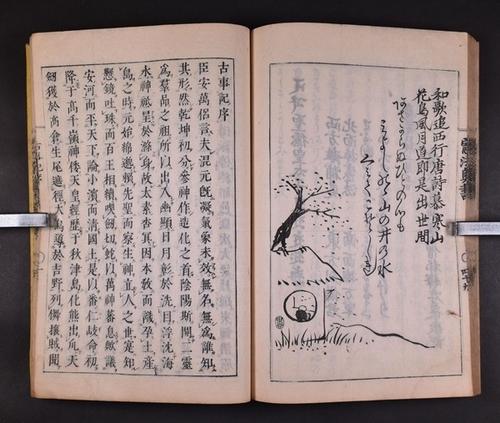 和歌追西行唐詩慕寒山
花鳥風月道即是出世間
山の井の水
古事記序
臣安萬侶言夫混元既凝氣象未效無名無爲誰知
其形然乾坤初分參神作造化之首陰陽斯開二靈
爲羣品之祖所以出入幽顯日月彰於洗目浮沈海
水神祇呈於滌身故太素杳冥因本教而識孕土産
島之時元始綿邈頼先聖而察生神立人之世寔知
懸鏡吐珠而百王相續喫劒切蛇以萬神蕃息歟議
安河而平天下論小濱而清國土是以番仁岐命初
降于高千嶺神倭天皇經歷于秋津島化熊出爪天
劒獲於高倉生尾遮徑大烏導於吉野列儛攘賊聞